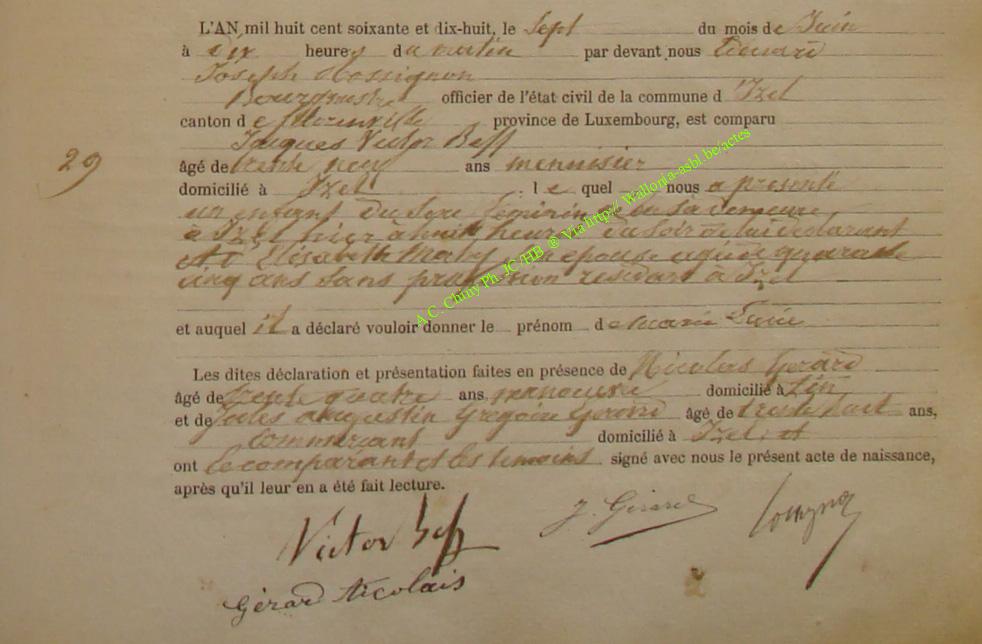 L'AN mil huit cent soixante et dix-huit, le Sept du mois de Juin
à dix heures du matin par devant nous Edouard
Joseph
Bourgmestre officier de l'état civil de la commune d'Izel
canton de Florenville province de Luxembourg, est comparu
Jacques Victor Beff
29
âgé de trente neuf ans menuisier
domicilié à Izel le quel nous a présenté
un enfant du sexe féminin né en sa demeure
à Izel hier à huit heures du soir de lui déclarant
et d'Elisabeth son épouse agée de quarante
cinq ans sans profession residant à Izel
et auquel il a déclaré vouloir donner le prénom de Marie
Les dites déclaration et présentation faites en présence de Nicolas Gerard
âgé de trente quatre ans, manouvrier domicilié à
et de Jules Augustin Gregoire Gerard âgé de trente huit ans,
Commerçant domicilié à Izel, et
ont le comparant et les témoins signé avec nous le présent acte de naissance,
après qu'il leur en a été fait lecture.
J. Gérard
Victor Beff
Gérard Nicolais
A.C. Chiny Ph. JC/HB ® Via http:// Wallonia-asbl.be/actes